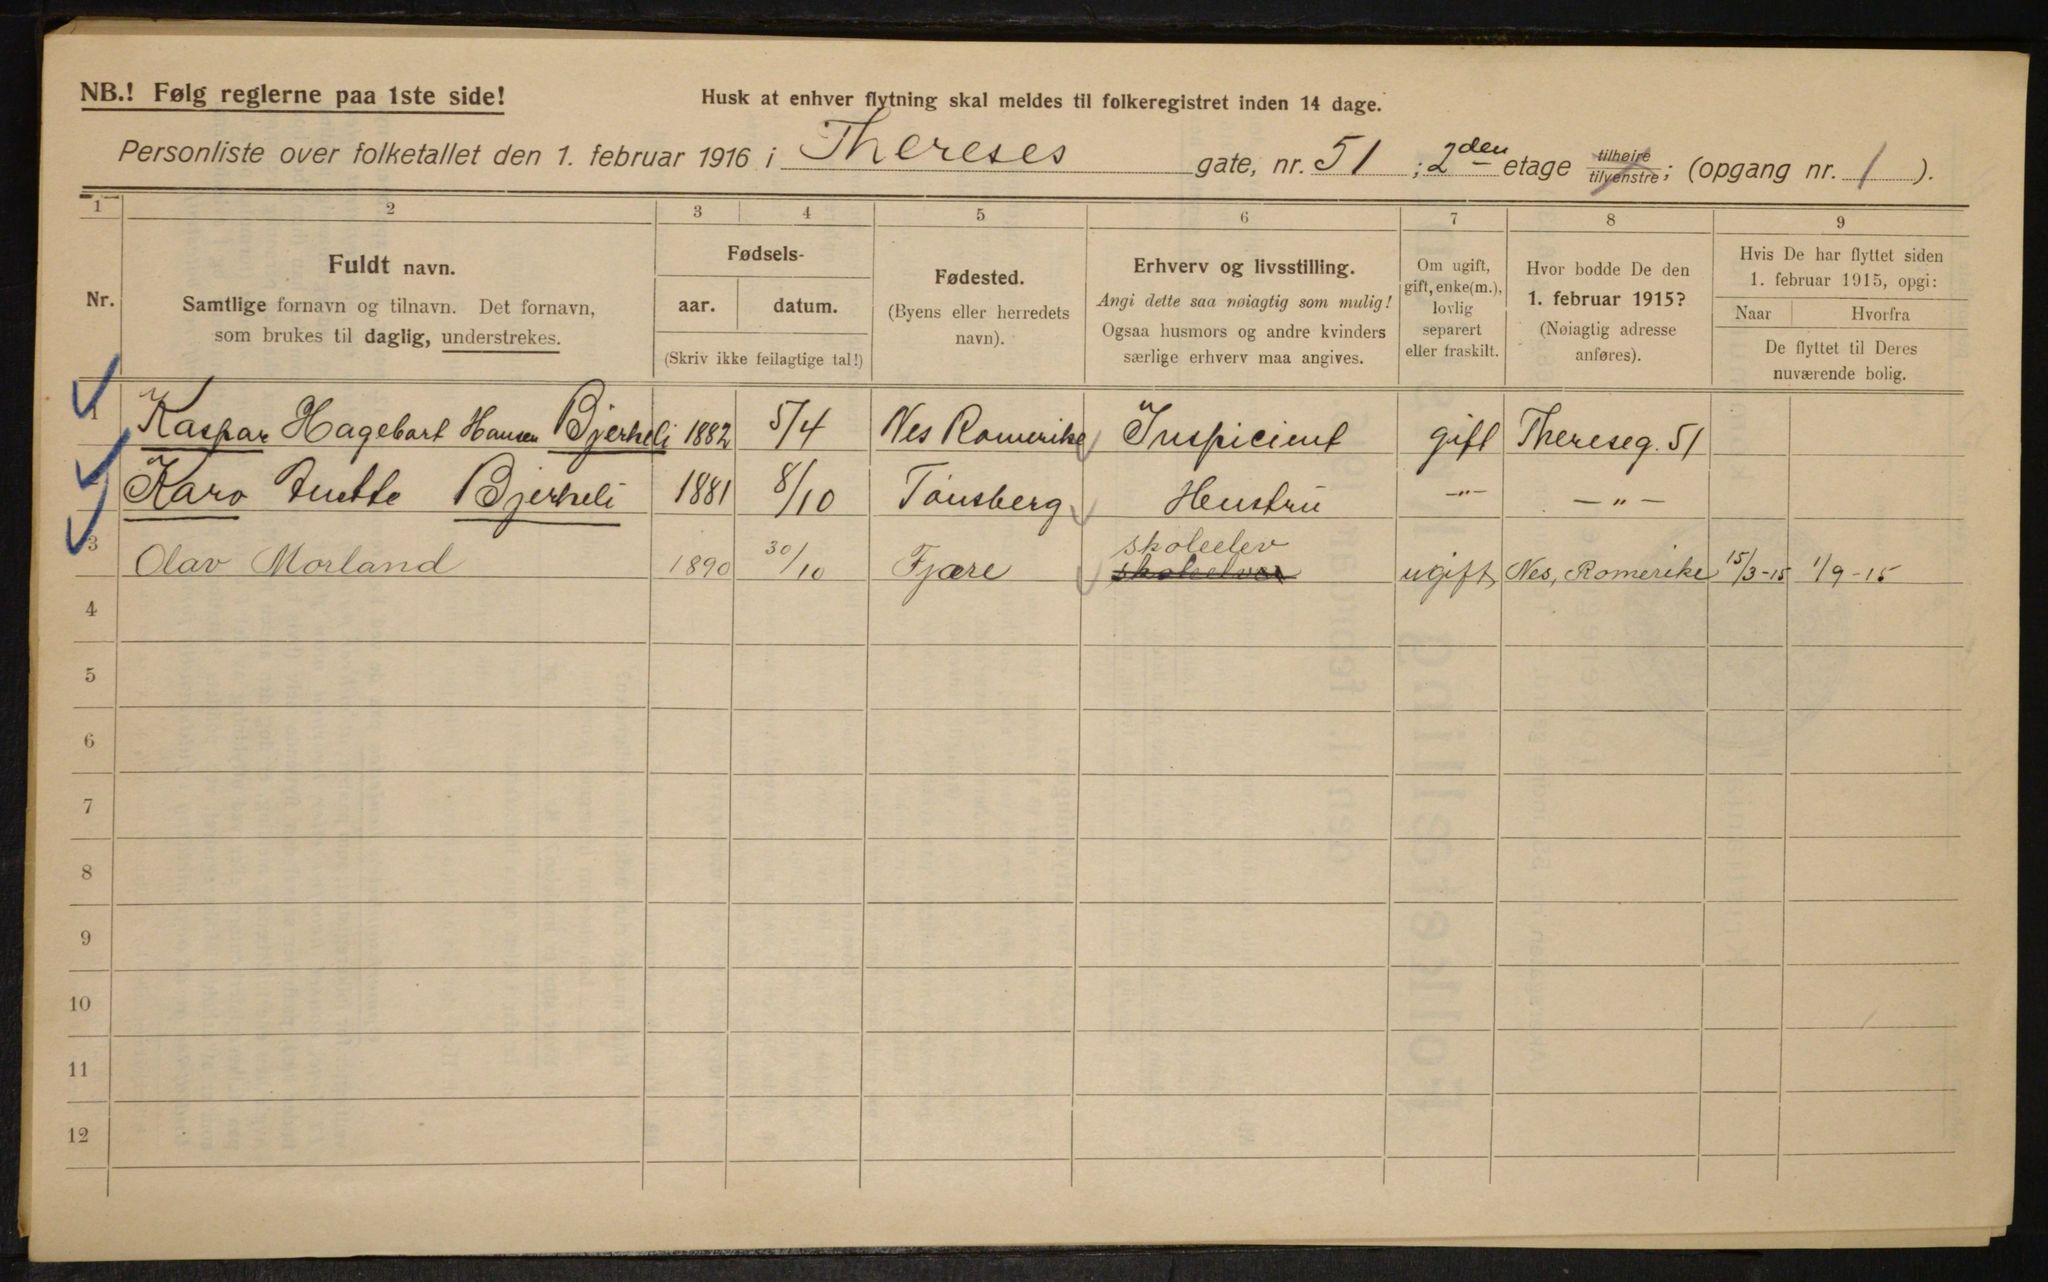 NB.! Følg reglerne paa 1ste side!
Husk at enhver flytning skal meldes til folkeregistret inden 14 dage.
Personliste over folketallet den 1. februar 1916 i Thereses gate, nr. 51 ; 2den etage tilhøire tilvenstre; (opgang nr. 1 ).
1 2 3 4 5 6 7 8 9
Nr.
Fuldt navn.
Samtlige fornavn og tilnavn. Det fornavn,
som brukes til daglig, understrekes.
Fødsels-
aar. datum.
(Skriv ikke feilagtige tal!)
Fødested.
(Byens eller herredets
navn).
Erhverv og livsstilling.
Angi dette saa nøiagtig som mulig!
Ogsaa husmors og andre kvinders
særlige erhverv maa angives.
Om ugift,
gift, enke(m.),
lovlig
separert
eller fraskilt.
Hvor bodde De den
1. februar 1915?
(Nøiagtig adresse
anføres).
Hvis De har flyttet siden
1. februar 1915, opgi:
Naar Hvorfra
De flyttet til Deres
nuværende bolig.
1 Kaspar Hagebart Hansen Bjerkeli 1882 5/4 Nes Romerike Inspicient gift Thereseg. 51
Karo Anette Bjerkeli 1881 8/10 Tønsberg Hustru -"- - " -
skoleelev
3 Olav Morland 1890 30/10 Fjære ugift Nes, Romerike 15/3-15 1/9-15
4
5
6
7
8
9
10
11
12